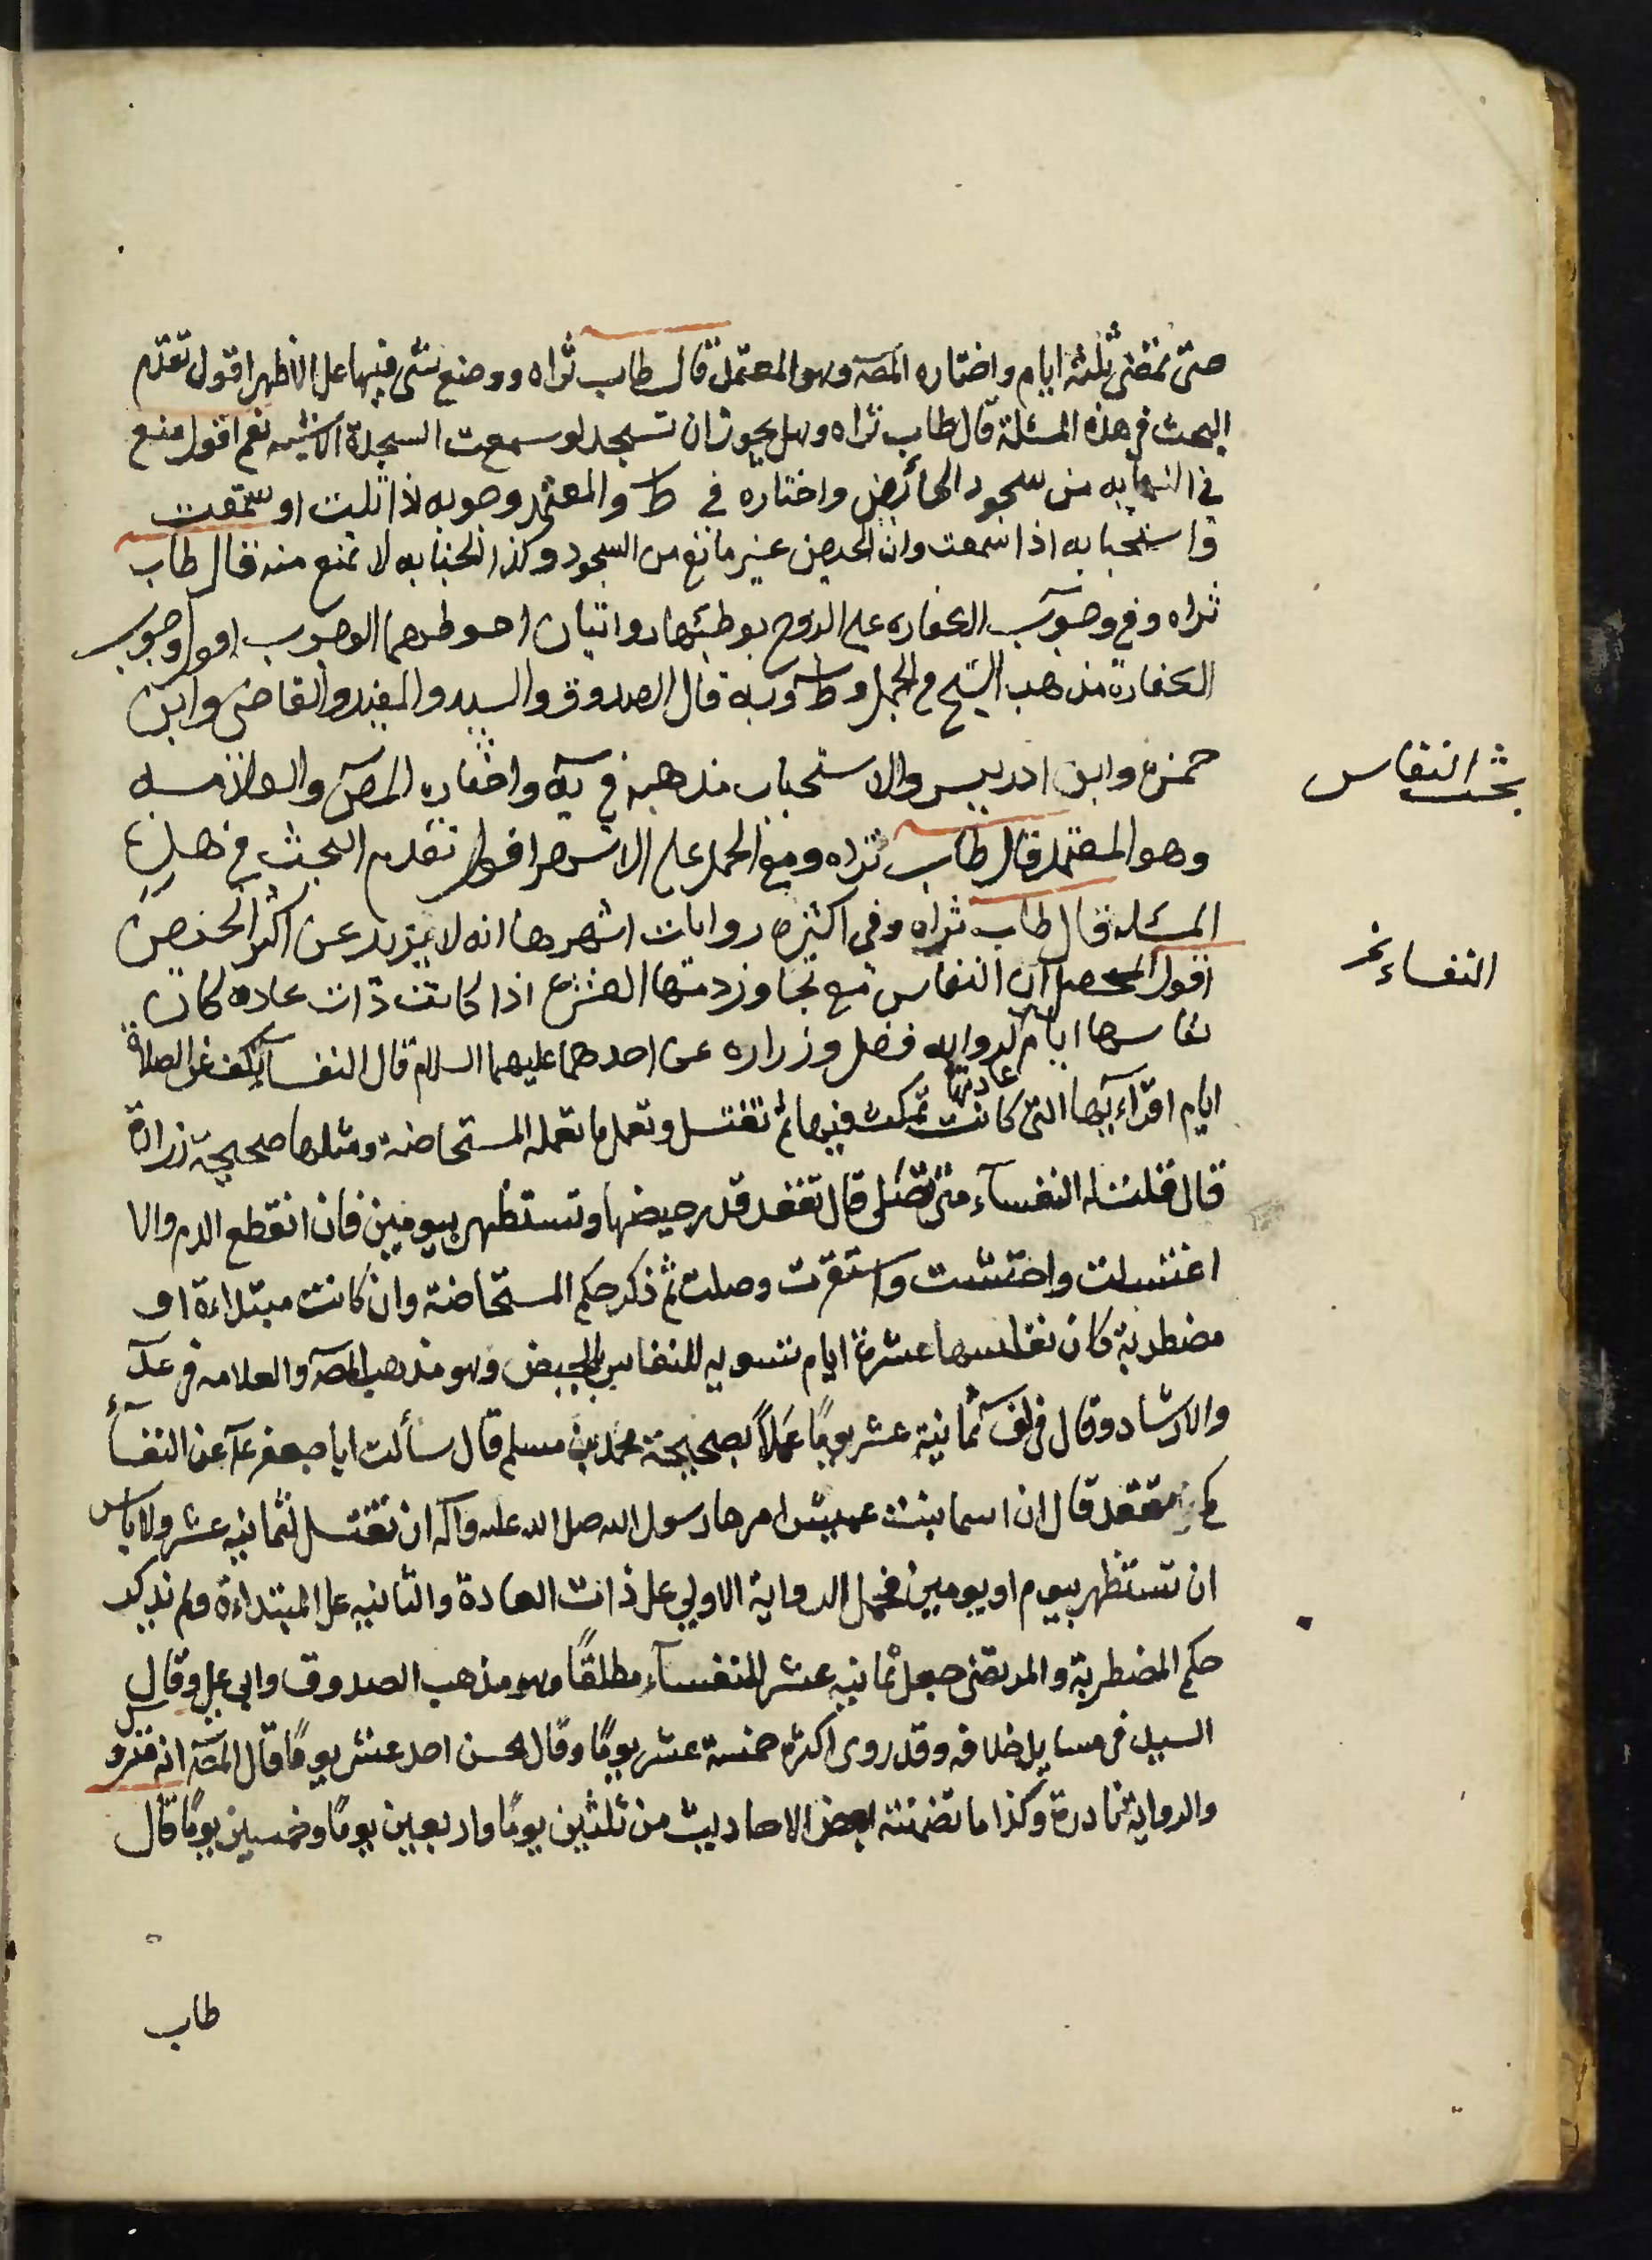 حتى تمضى ثلثة ايام واختاره المصـ وهو المعتمد قال طاب ثراه ووضع شئ فيها على الاظهر اقول تقدم
البحث فى هذه المسئلة قال طاب ثراه وهل يجوز ان تسجد لو سمعت السجدة الاشبه نعم اقول منع
في النهايه من سجود الحائض واختاره في ط والمعتمد وجوبه اذا تلت او سمعت
واستحبابه اذا سمعت وان الحيض غير مانع من السجود وكذا الجنابه لا تمنع منه قال طاب
ثراه وفى وجوب الكفاره على الزوج بوطئها روايتان احوطهما الوجوب اقول وجوب
الكفارة مذهب الشيخ فى الجمل و ط وبه قال الصدوق والسيد والمفيد والقاضى وابن
حمزه وابن ادريس والاستحباب مذهبه في يه واختاره المصـ والعلامه
وهو المعتمد قال طاب ثراه ومع الحمل على الاشهر اقول تقدم البحث في هذه
المسئله قال طاب ثراه وفى اكثره روايات اشهرها انه لا يزيد عن اكثر الحيض
اقول المحصل ان النفاس مع تجاوز دمها العشره اذا كانت ذات عاده كان
نفاسها ايام عادتها لروايه فضل وزراره عن احدهما عليهما السلام قال النفساء تكف عن الصلاة
ايام اقرآئها التى كانت تمكث فيها ثم تغتسل وتعمل ما تعمله المستحاضة ومثلها صحيحة زرارة
قال قلت له النفسآء متى تصلى قال تقعد قدر حيضها وتستظهر بيومين فان انقطع الدم والا
اغتسلت واحتشت واستثفرت وصلت ثم ذكر حكم المستحاضة وان كانت مبتداءة او
مضطربة كان نفاسها عشرة ايام تسويه للنفاس بالحيض وهو مذهب المصـ والعلامه فى عد
والارشاد وقال فى لف ثمانية عشر يومًا عملاً بصحيحة محمد بن مسلم قال سألت ابا جعفر ع عن النفسآء
كم تقعد قال ان اسما بنت عميس امرها رسول الله صلى الله عليه واله ان تغتسل لثمانيه عشر ولا باس
ان تستظهر بيوم او يومين فحمل الرواية الاولي على ذات العادة والثانيه على المبتداءة ولم يذكر
حكم المضطربة والمرتضى جعل ثمانيه عشر للنفسآء مطلقًا وهو مذهب الصدوق وابى على وقال
السيد فى مسايل خلافه وقد روى اكثره خمسة عشر يومًا وقال الحسن احد عشر يومًا قال المصـ انه متروك
والرواية نادرة وكذا ما تضمنته بعض الاحاديث من ثلثين يومًا واربعين يومًا وخمسين يومًا قال
طاب
بحث النفاس
النفساء